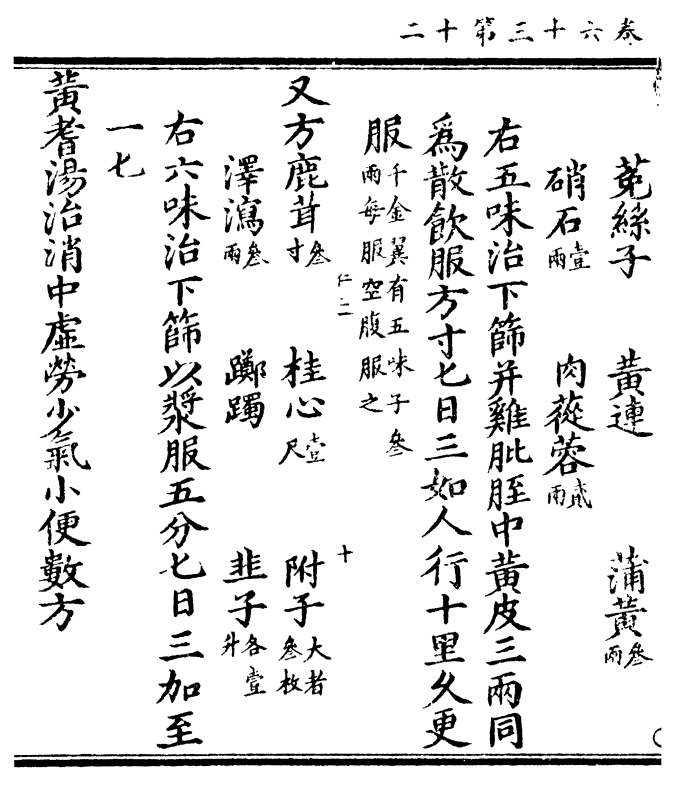 卷六十三第十二
菟絲子　黃連　蒲黃叁兩
硝石壹兩　肉蓯蓉貳兩
右五味治下篩并雞肶胵中黃皮三兩同
爲散飲服方寸匕日三如人行十里久更
服千金翼有五味子叁兩每服空腹服之
仁二　十
又方鹿茸叁寸　桂心壹尺　附子大者叁枚
澤瀉叁兩　躑躅　韭子各壹升
右六味治下篩以漿服五分匕日三加至
一匕
黃耆湯治消中虛勞少氣小便數方